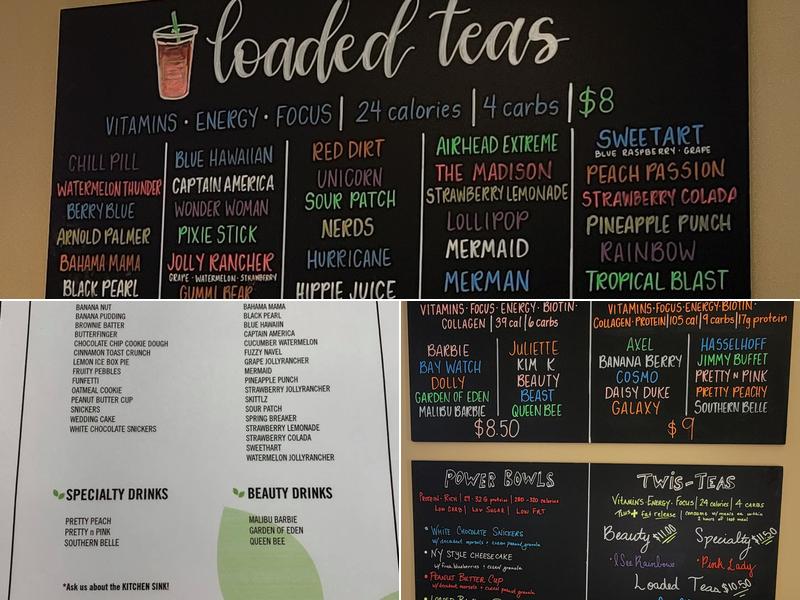 loaded teas
VITAMINS · ENERGY · FOCUS | 24 calories | 4 carbs | $8
CHILL PILL
WATERMELON THUNDER
BERRY BLUE
ARNOLD PALMER
BAHAMA MAMA
BLACK PEARL
BLUE HAWAIIAN
CAPTAIN AMERICA
WONDER WOMAN
PIXIE STICK
JOLLY RANCHER
GRAPE · WATERMELON · STRAWBERRY
GUMMI BEAR
RED DIRT
UNICORN
SOUR PATCH
NERDS
HURRICANE
HIPPIE JUICE
AIRHEAD EXTREME
THE MADISON
STRAWBERRY LEMONADE
LOLLIPOP
MERMAID
MERMAN
SWEETART
BLUE RASPBERRY · GRAPE
PEACH PASSION
STRAWBERRY COLADA
PINEAPPLE PUNCH
RAINBOW
TROPICAL BLAST
BANANA NUT
BANANA PUDDING
BROWNIE BATTER
BUTTERFINGER
CHOCOLATE CHIP COOKIE DOUGH
CINNAMON TOAST CRUNCH
LEMON ICE BOX PIE
FRUITY PEBBLES
FUNFETTI
OATMEAL COOKIE
PEANUT BUTTER CUP
SNICKERS
WEDDING CAKE
WHITE CHOCOLATE SNICKERS
BAHAMA MAMA
BLACK PEARL
BLUE HAWAIIN
CAPTAIN AMERICA
CUCUMBER WATERMELON
FUZZY NAVEL
GRAPE JOLLYRANCHER
MERMAID
PINEAPPLE PUNCH
STRAWBERRY JOLLYRANCHER
SKITTLZ
SOUR PATCH
SPRING BREAKER
STRAWBERRY LEMONADE
STRAWBERRY COLADA
SWEETHART
WATERMELON JOLLYRANCHER
SPECIALTY DRINKS
PRETTY PEACH
PRETTY n PINK
SOUTHERN BELLE
BEAUTY DRINKS
MALIBU BARBIE
GARDEN OF EDEN
QUEEN BEE
*Ask us about the KITCHEN SINK!
VITAMINS · FOCUS · ENERGY · BIOTIN ·
COLLAGEN | 39 cal | 6 carbs
BARBIE
BAY WATCH
DOLLY
GARDEN OF EDEN
MALIBU BARBIE
JULIETTE
KIM K
BEAUTY
BEAST
QUEEN BEE
$8.50
VITAMINS · FOCUS · ENERGY · BIOTIN ·
COLLAGEN · PROTEIN | 105 cal | 9 carbs | 17g protein
AXEL
BANANA BERRY
COSMO
DAISY DUKE
GALAXY
HASSELHOFF
JIMMY BUFFET
PRETTY N PINK
PRETTY PEACHY
SOUTHERN BELLE
$9
POWER BOWLS
LOW CARB | LOW SUGAR | LOW FAT
• WHITE CHOCOLATE SNICKERS
• NY STYLE CHEESECAKE
• PEANUT BUTTER CUP
TWIS-TEAS
VITAMINS · ENERGY · FOCUS | 24 calories | 4 CARBS
Beauty $11.00
Specialty $11.50
· I See Rainbows
• Pink Lady
Loaded Teas $10.50